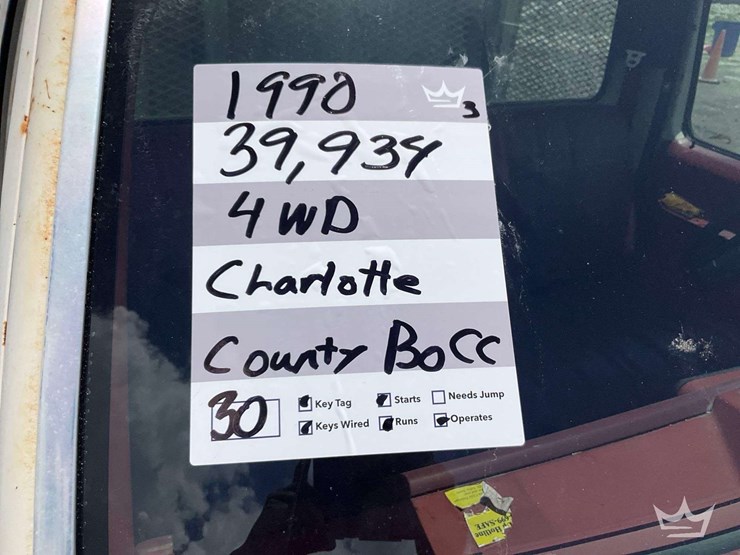 1990
3
39,934
4WD
Charlotte
County BoCC
30
Key Tag Starts Needs Jump
Keys Wired Runs Operates
Hotline